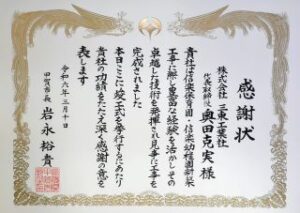 感謝状
株式会社 三東工業社
代表取締役 奥田克実 様
貴社は信楽保育園・信楽幼稚園新築
工事に際し豊富な経験を活かしその
卓越した技術を発揮され見事に工事を
完成されました
本日ここに竣工式を挙行するにあたり
貴社の功績をたたえ深く感謝の意を
表します
令和六年三月十日
甲賀市長 岩永裕貴